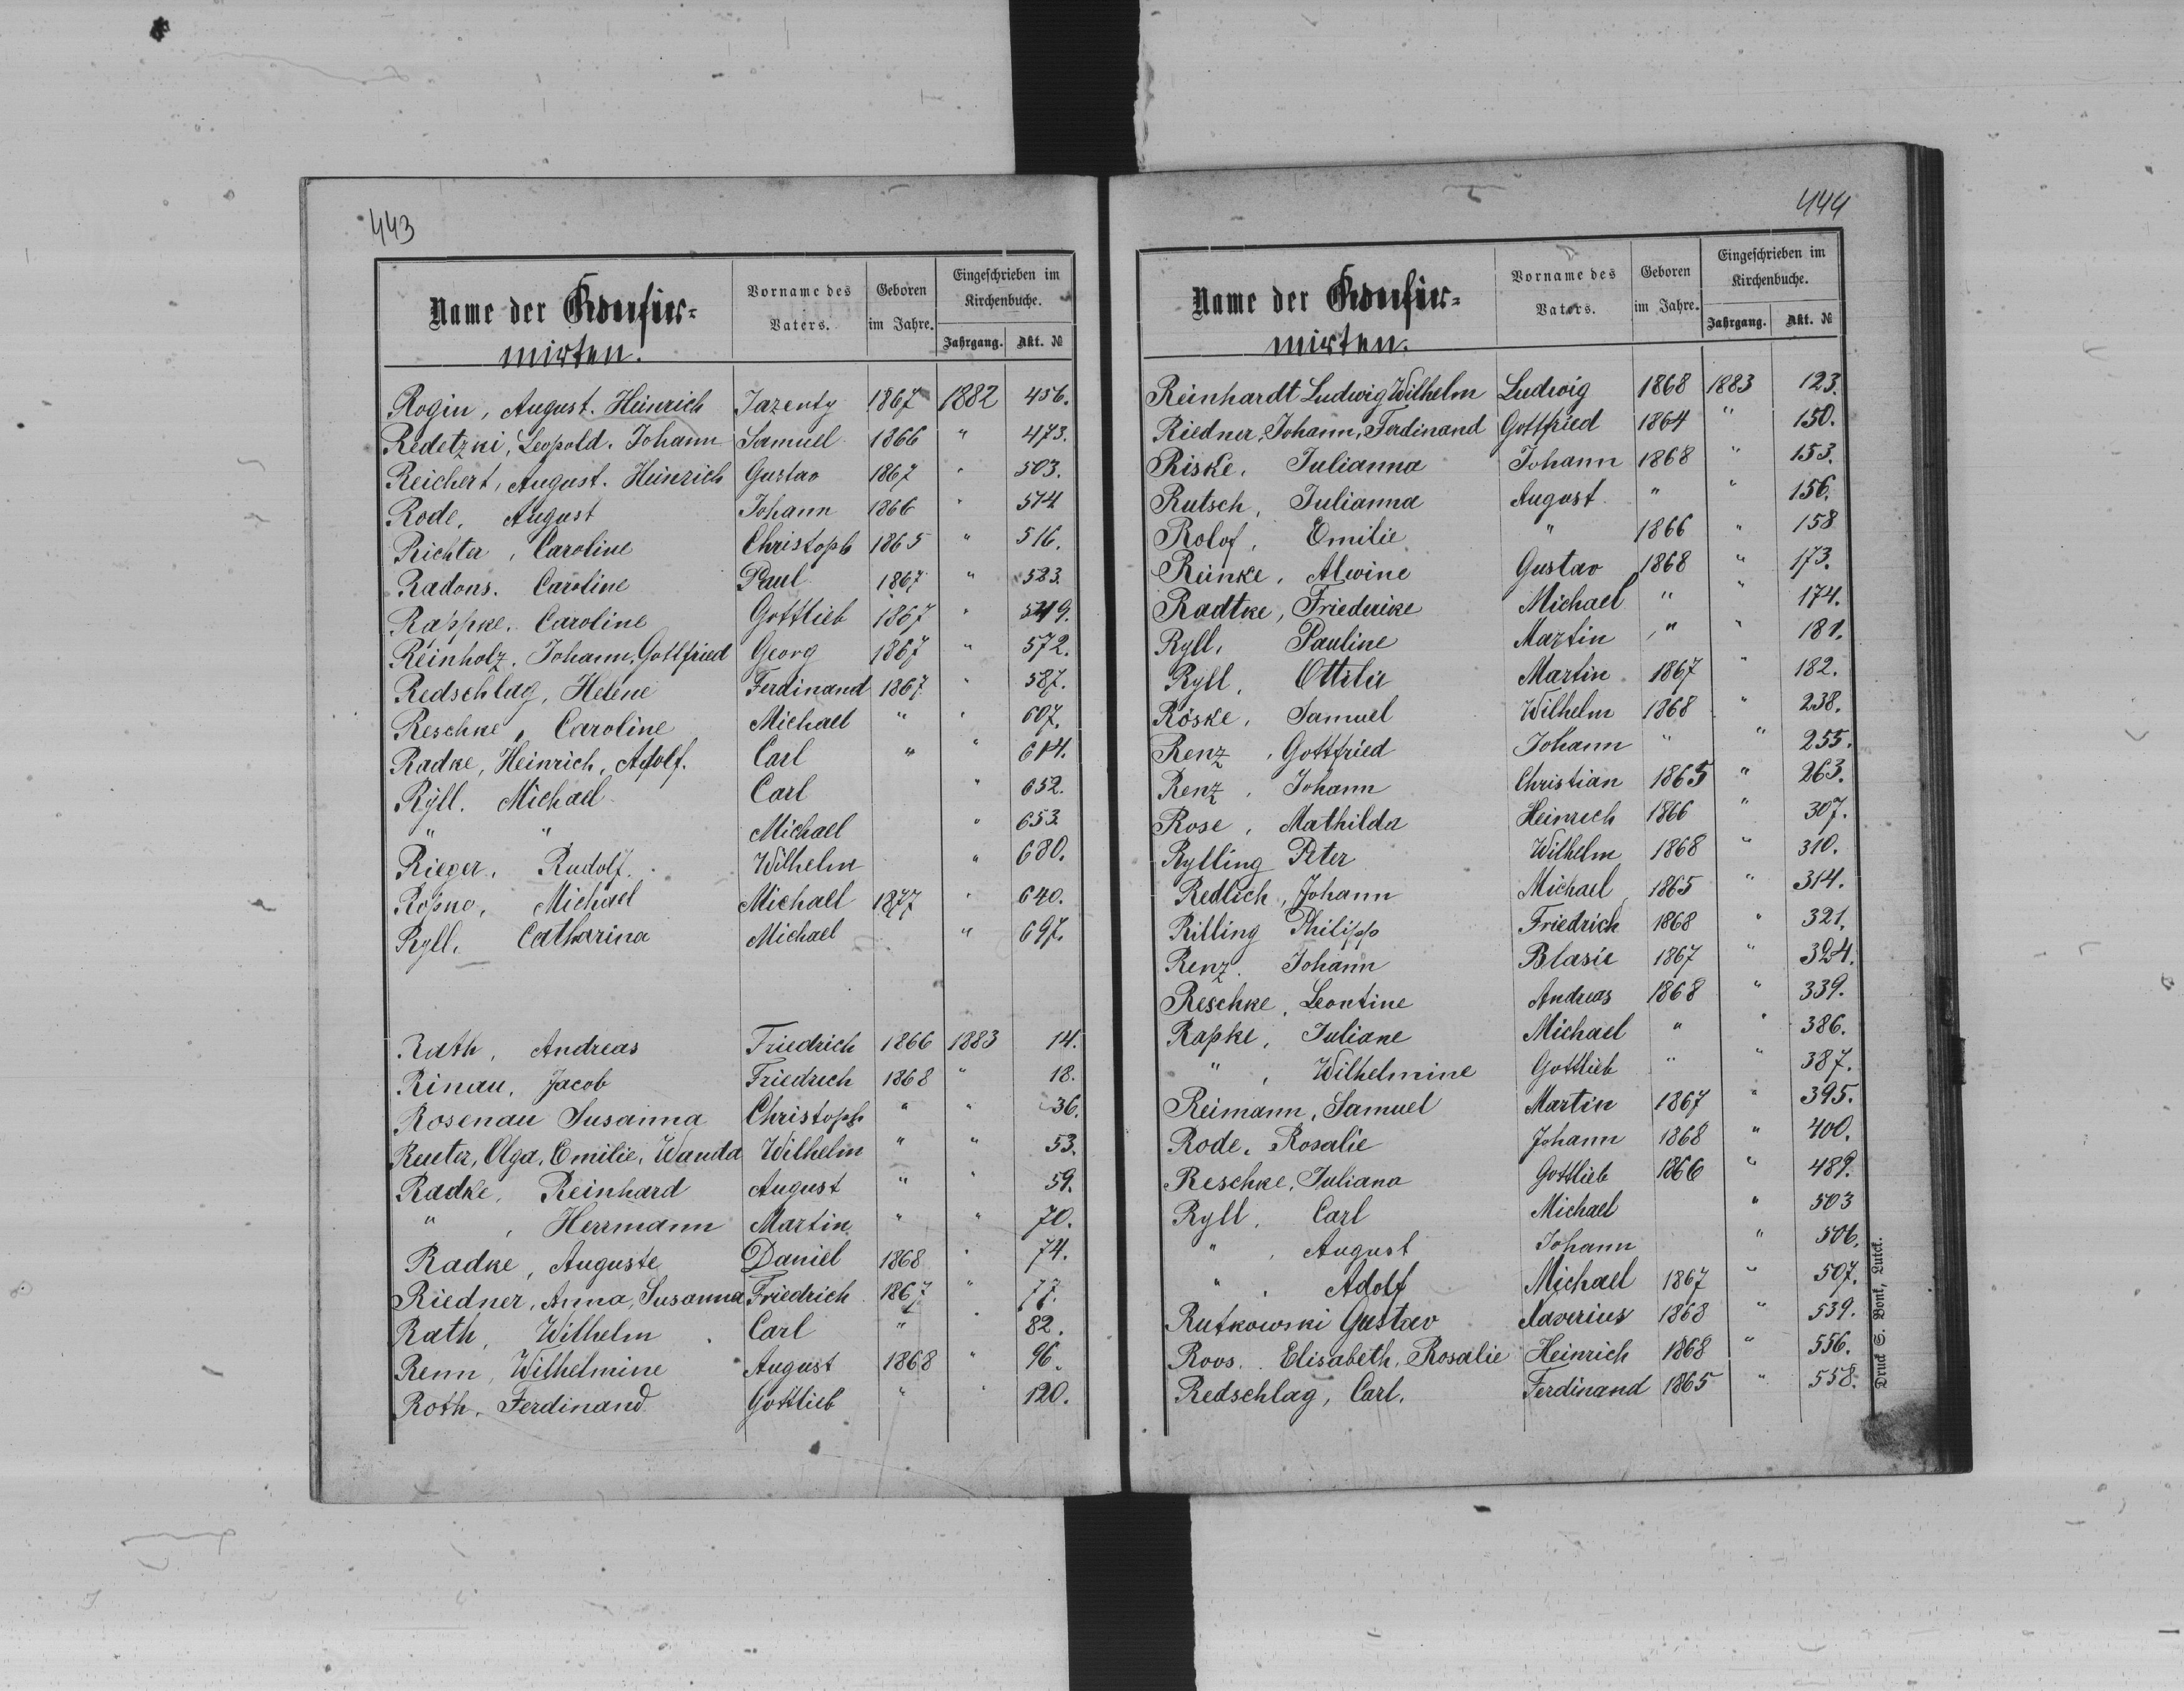 443
Name der Konfir=
mirten.
Vorname des Vaters.
Geboren im Jahre.
Eingeschrieben im Kirchenbuche.
Jahrgang. Akt. №
Rogin, August. Heinrich Jazenty 1867 1882 456.
Redetzki, Leopold. Johann Samuel 1866 " 473.
Reichert, August. Heinrich Gustav 1867 " 503.
Rode, August Johann 1866 " 514
Richter, Caroline Christoph 1865 " 516.
Radons. Caroline Paul 1867 " 523.
Rappke. Caroline Gottlieb 1867 " 549.
Reinholz. Johann, Gottfried Georg 1867 " 572.
Redschlag, Helene Ferdinand 1867 " 587.
Reschke, Caroline Michael " " 607.
Radke, Heinrich, Adolf. Carl " " 614.
Ryll. Michael Carl " 652.
" " Michael " 653.
Rieger, Rudolf. Wilhelm " 680.
Michael Michael 1877 " 640.
Ryll, Catharina Michael " 697.
Rath, Andreas Friedrich 1866 1883 14.
Rinau, Jacob Friedrich 1868 " 18.
Rosenau Susanna Christoph " " 36.
Reuter, Olga, Emilie, Wanda Wilhelm " " 53.
Radke, Reinhard August " " 59.
" , Herrmann Martin " " 70.
Radke, Auguste Daniel 1868 " 74.
Riedner, Anna, Susanna Friedrich 1867 " 77.
Rath, Wilhelm Carl " " 82.
Renn, Wilhelmine August 1868 " 96.
Roth, Ferdinand Gottlieb " " 120.
444
Name der Konfir=
mirten.
Vorname des Vaters.
Geboren im Jahre.
Eingeschrieben im Kirchenbuche.
Jahrgang. Akt. №
Reinhardt Ludwig Wilhelm Ludwig 1868 1883 123.
Riedner, Johann, Ferdinand Gottfried 1864 " 150.
Riske, Julianna Johann 1868 " 153.
Rutsch, Julianna August " " 156.
Rolof, Emilie " 1866 " 158
Reinke, Alwine Gustav 1868 " 173.
Radtke, Friederike Michael " " 174.
Ryll, Pauline Martin " " 181.
Ryll, Ottilie Martin 1867 " 182.
Röske, Samuel Wilhelm 1868 " 238.
Renz, Gottfried Johann " " 255.
Renz, Johann Christian 1865 " 263.
Rose, Mathilda Heinrich 1866 " 307.
Rylling Peter Wilhelm 1868 " 310.
Redlich, Johann Michael 1865 " 314.
Rilling Philipp Friedrich 1868 " 321.
Renz. Johann Blasie 1867 " 324.
Reschke, Leontine Andreas 1868 " 339.
Rapke, Juliane Michael " " 386.
" , Wilhelmine Gottlieb " " 387.
Reimann, Samuel Martin 1867 " 395.
Rode, Rosalie Johann 1868 " 400.
Reschke, Juliana Gottlieb 1866 " 489.
Ryll, Carl Michael " 503
" , August Johann " 506.
" , Adolf Michael 1867 " 507.
Rutkowski Gustav Xaverius 1868 " 539.
Roos. Elisabeth, Rosalie Heinrich 1868 " 556.
Redschlag, Carl. Ferdinand 1865 " 558.
Druck S. Bonk, Luck.